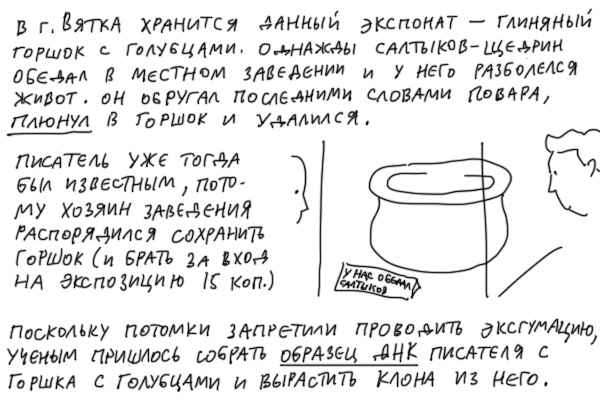 В г. ВЯТКА ХРАНИТСЯ ДАННЫЙ ЭКСПОНАТ — ГЛИНЯНЫЙ
ГОРШОК С ГОЛУБЦАМИ. ОДНАЖДЫ САЛТЫКОВ-ЩЕДРИН
ОБЕДАЛ В МЕСТНОМ ЗАВЕДЕНИИ И У НЕГО РАЗБОЛЕЛСЯ
ЖИВОТ. ОН ОБРУГАЛ ПОСЛЕДНИМИ СЛОВАМИ ПОВАРА,
ПЛЮНУЛ В ГОРШОК И УДАЛИЛСЯ.
ПИСАТЕЛЬ УЖЕ ТОГДА
БЫЛ ИЗВЕСТНЫМ, ПОТО-
МУ ХОЗЯИН ЗАВЕДЕНИЯ
РАСПОРЯДИЛСЯ СОХРАНИТЬ
ГОРШОК (И БРАТЬ ЗА ВХОД
НА ЭКСПОЗИЦИЮ 15 КОП.)
У НАС ОБЕДАЛ
САЛТЫКОВ
ПОСКОЛЬКУ ПОТОМКИ ЗАПРЕТИЛИ ПРОВОДИТЬ ЭКСГУМАЦИЮ,
УЧЕНЫМ ПРИШЛОСЬ СОБРАТЬ ОБРАЗЕЦ ДНК ПИСАТЕЛЯ С
ГОРШКА С ГОЛУБЦАМИ И ВЫРАСТИТЬ КЛОНА ИЗ НЕГО.